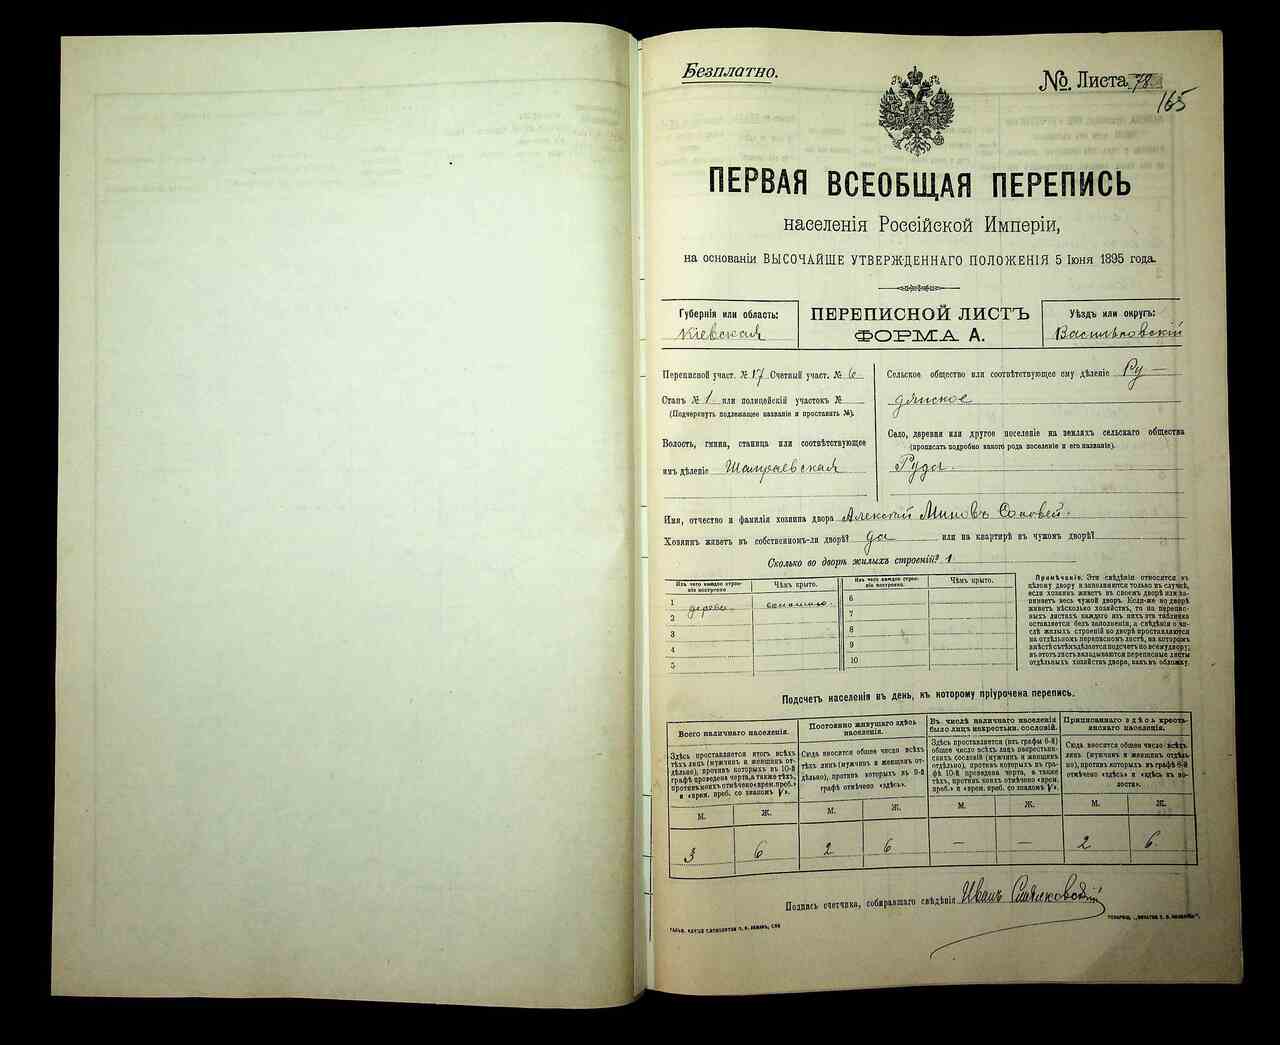 Безплатно.
№. Листа 78
165
ПЕРВАЯ ВСЕОБЩАЯ ПЕРЕПИСЬ
населенія Россійской Имперіи,
на основаніи ВЫСОЧАЙШЕ УТВЕРЖДЕННАГО ПОЛОЖЕНІЯ 5 Іюня 1895 года.
Губернія или область:
Кіевская
ПЕРЕПИСНОЙ ЛИСТЪ
ФОРМА А.
Уѣздъ или округъ:
Васильковскій
Переписной участ. № 17 Счетный участ. № 6
Станъ № 1 или полицейскій участокъ №
(Подчеркнуть подлежащее названіе и проставить №).
Волость, гмина, станица или соотвѣтствующее
имъ дѣленіе Шамраевская
Сельское общество или соотвѣтствующее ему дѣленіе Ру-
дянское
Село, деревня или другое поселеніе на земляхъ сельскаго общества
(прописать подробно какого рода поселеніе и его названіе).
Руда.
Имя, отчество и фамилія хозяина двора Алексѣй Соловей.
Хозяинъ живетъ въ собственномъ-ли дворѣ? да или на квартирѣ въ чужомъ дворѣ?
Сколько во дворѣ жилыхъ строеній? 1
Изъ чего каждое строе-
ніе построено
Чѣмъ крыто.
Изъ чего каждое строе-
ніе построено
Чѣмъ крыто.
1 дерева. соломою.
2
3
4
5
6
7
8
9
10
Примѣчаніе. Эти свѣдѣнія относятся къ
цѣлому двору и заполняются только въ случаѣ,
если хозяинъ живетъ въ своемъ дворѣ или за-
нимаетъ весь чужой дворъ. Если-же во дворѣ
живетъ нѣсколько хозяйствъ, то на перепис-
ныхъ листахъ каждаго изъ нихъ эта табличка
оставляется безъ заполненія, а свѣдѣнія о чи-
слѣ жилыхъ строеній во дворѣ проставляются
на отдѣльномъ переписномъ листѣ, на которомъ
вмѣстѣ съ тѣмъ дѣлается подсчетъ по всему двору;
въ этотъ листъ вкладываются переписные листы
отдѣльныхъ хозяйствъ двора, какъ въ обложку.
Подсчетъ населенія въ день, къ которому пріурочена перепись.
Всего наличнаго населенія.
Здѣсь проставляется итогъ всѣхъ
тѣхъ лицъ (мужчинъ и женщинъ от-
дѣльно), противъ которыхъ въ 10-й
графѣ проведена черта, а также тѣхъ,
противъ коихъ отмѣчено «врем. преб.»
и «врем. преб. со знакомъ V».
Постоянно живущаго здѣсь
населенія.
Сюда вносится общее число всѣхъ
тѣхъ лицъ (мужчинъ и женщинъ от-
дѣльно), противъ которыхъ въ 9-й
графѣ отмѣчено «здѣсь».
Въ числѣ наличнаго населенія
было лицъ некрестьян. сословій.
Здѣсь проставляется (изъ графы 6-й)
общее число всѣхъ лицъ некрестьян-
скихъ сословій (мужчинъ и женщинъ
отдѣльно), противъ которыхъ въ гра-
фѣ 10-й проведена черта, а также
тѣхъ, противъ коихъ отмѣчено «врем.
преб.» и «врем. преб. со знакомъ V».
Приписаннаго здѣсь кресть-
янскаго населенія.
Сюда вносится общее число всѣхъ
лицъ (мужчинъ и женщинъ отдѣль-
но), противъ которыхъ въ графѣ 8-й
отмѣчено «здѣсь» и «здѣсь въ во-
лости».
М. Ж. М. Ж. М. Ж. М. Ж.
3 6 2 6 — — 2 6
Подпись счетчика, собиравшаго свѣдѣнія Иванъ